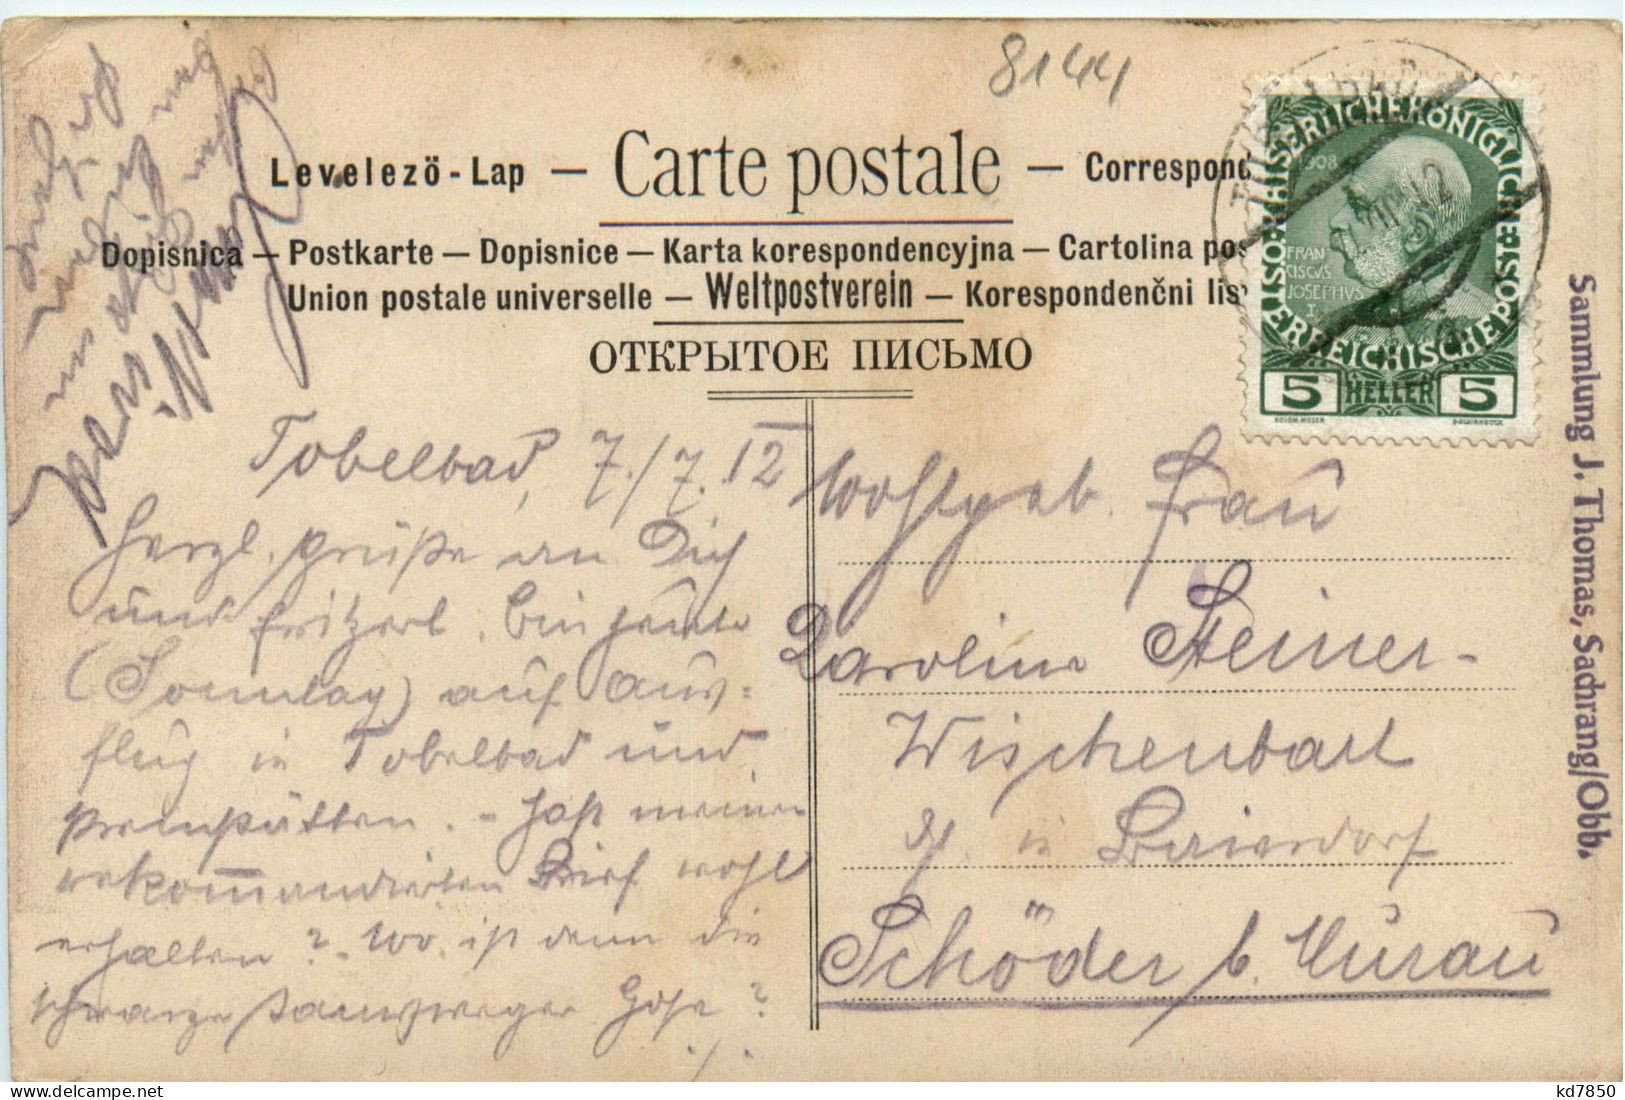 8144
Levelező-Lap — Carte postale — Correspond
Dopisnica — Postkarte — Dopisnice — Karta korespondencyjna — Cartolina pos
Union postale universelle — Weltpostverein — Korespondenční lis
ОТКРЫТОЕ ПИСЬМО
KAISERLICHE KÖNIGLICHE ÖSTERREICHISCHE POST
1908
FRAN
CISCVS
JOSEPHVS
I.
5 HELLER 5
Tobelbad, 7./7. 12
Herzl. Grüße an Dich
und Fritzerl. Bin heute
(Sonntag) auf Aus=
flug in Tobelbad und
Premstätten. - Hast meinen
rekommandierten Brief wohl
erhalten? - Wo ist denn die
schwarze Hose?
Wohlgeb. Frau
Karoline Steiner-
Wischenbart
in Baierdorf
Schöder b. Murau
Sammlung J. Thomas, Sachrang/Obb.
kd7850